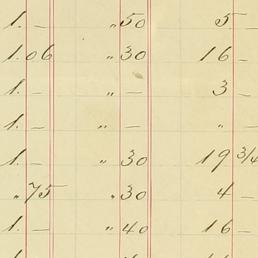 1. — „ 50 5 —
1. 06 „ 30 16 —
1. — „ — 3 —
1. — „ — „ —
1. — „ 30 19 3/4
„ 75 „ 30 4 —
1. — „ 40 16 —